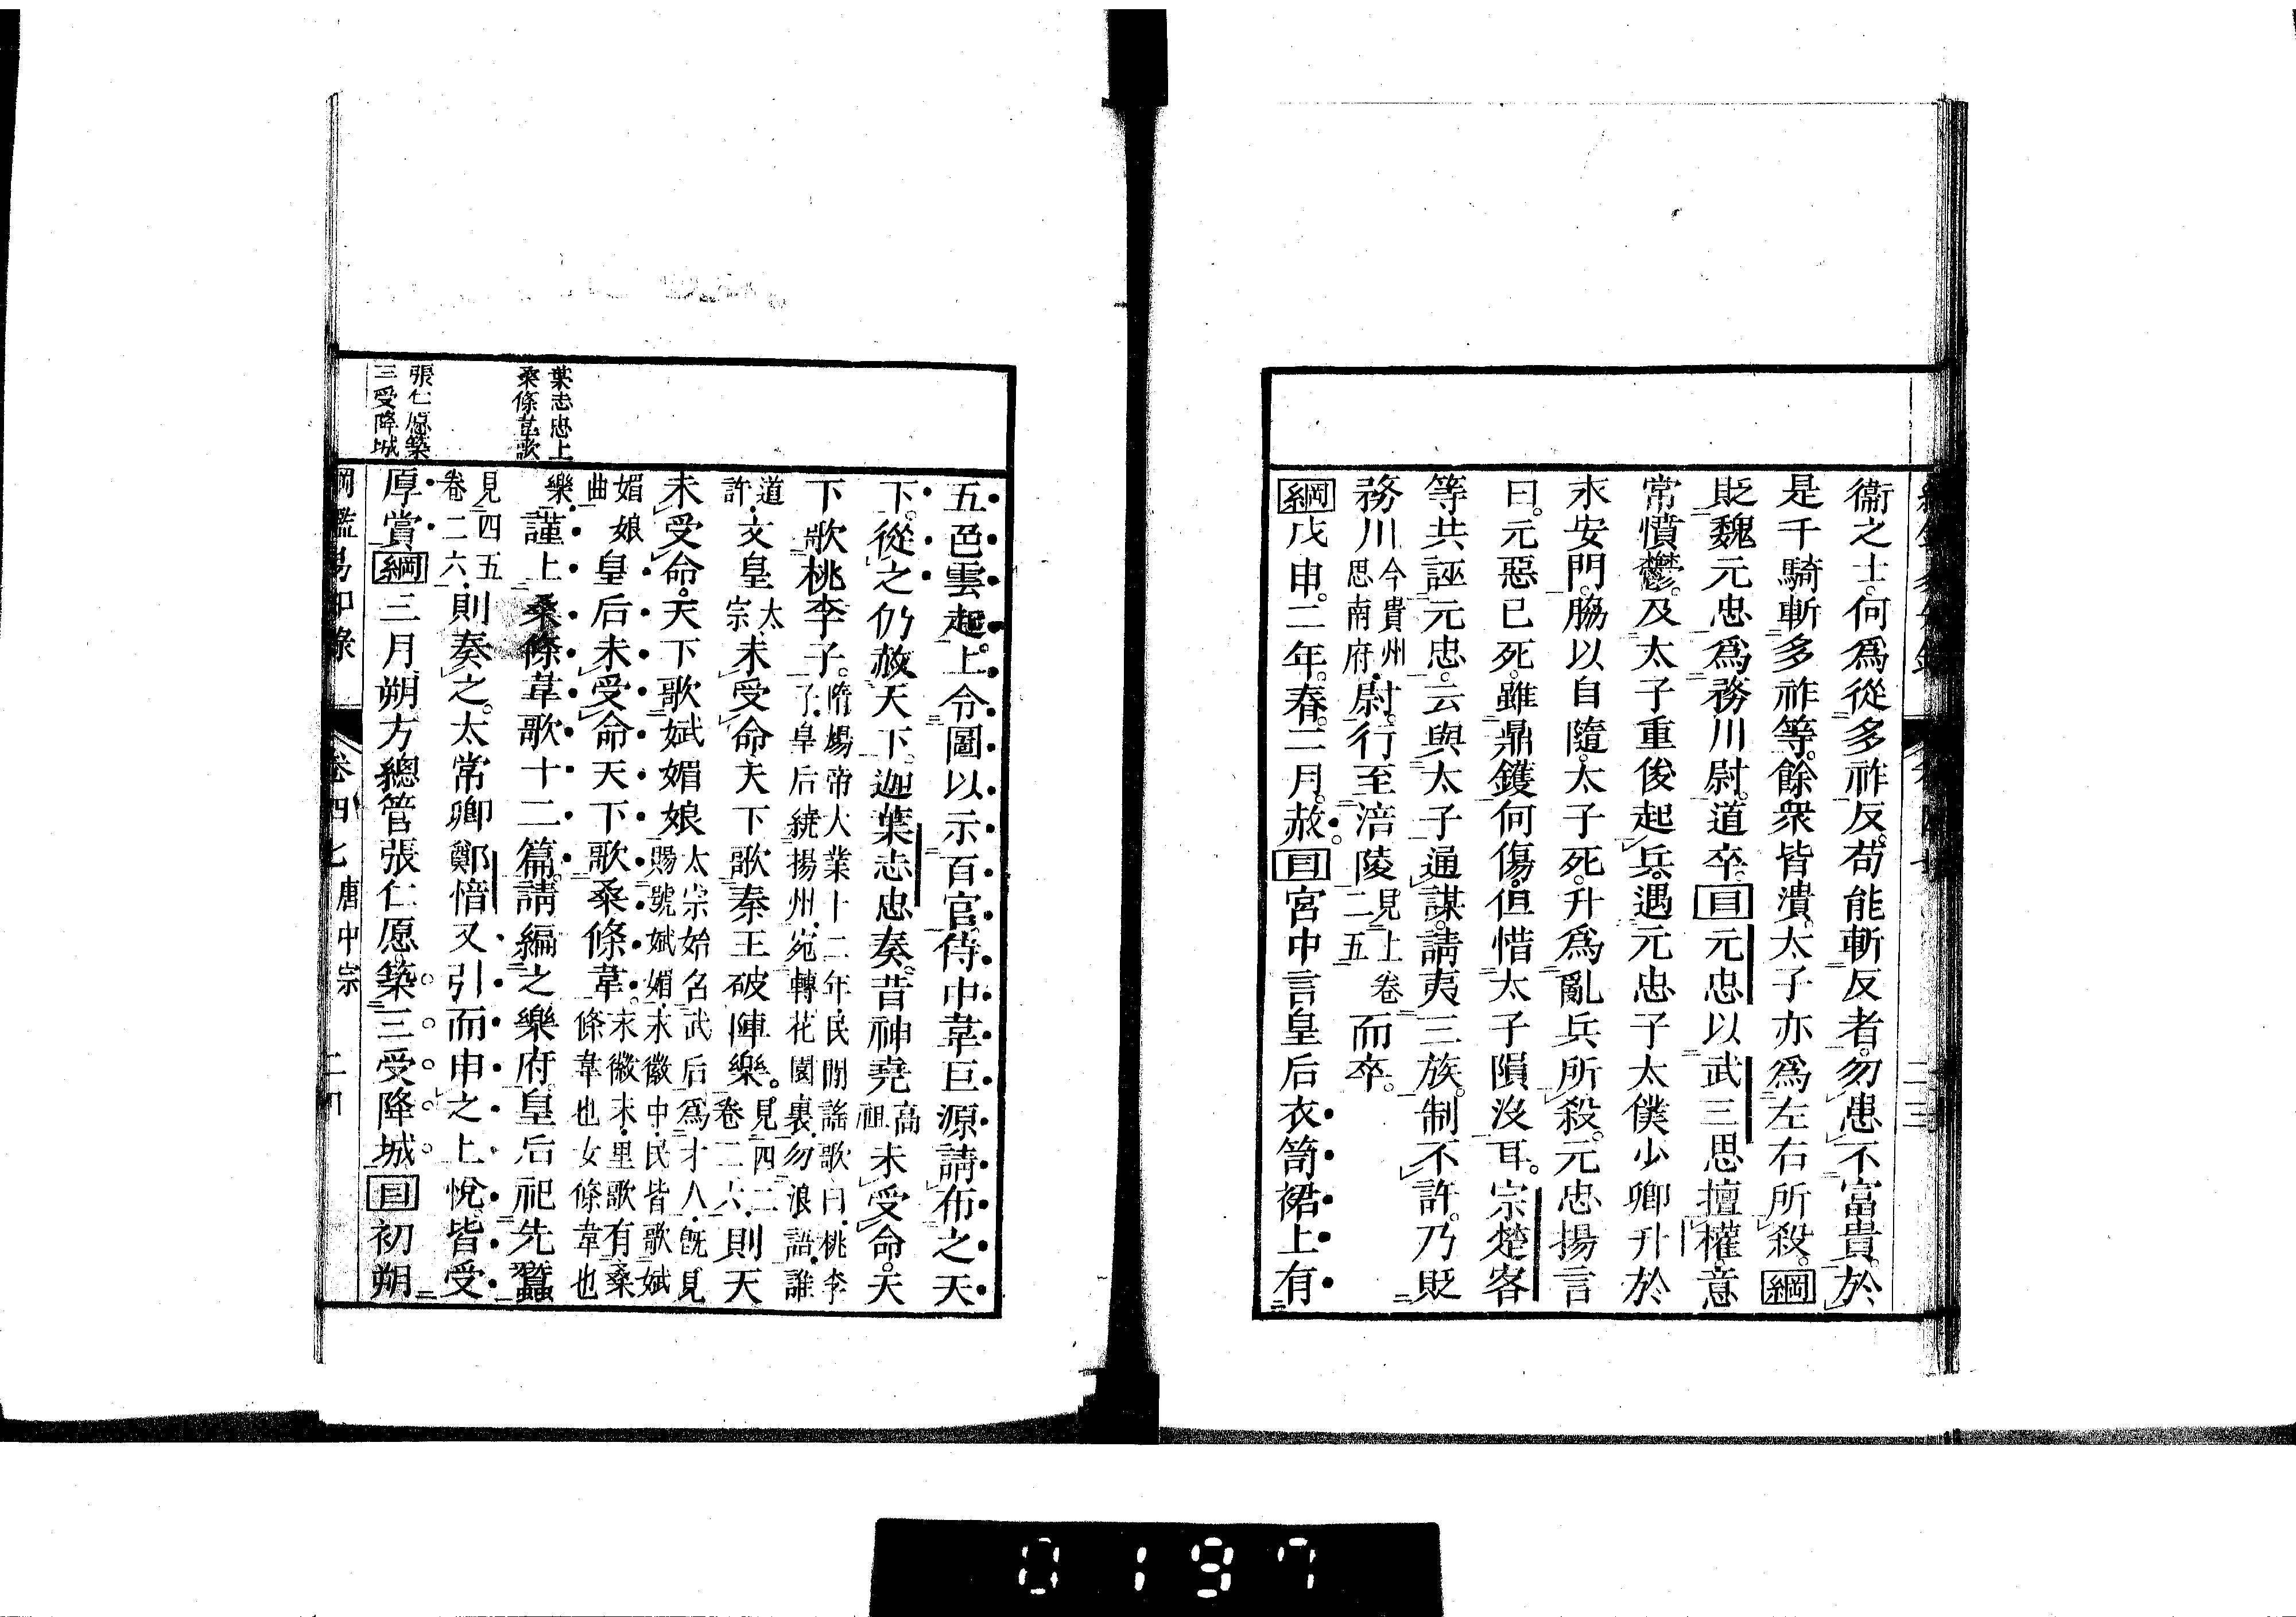 衞之士。何爲從多祚反。苟能斬反者。勿患不富貴。於
是千騎斬多祚等。餘衆皆潰。太子亦爲左右所殺。綱
貶魏元忠爲務川尉。道卒。目元忠以武三思擅權。意
常憤鬱。及太子重俊起兵。遇元忠子太僕少卿升於
永安門。脇以自隨。太子死。升爲亂兵所殺。元忠揚言
曰。元惡已死。雖鼎鑊何傷。但惜太子隕沒耳。宗楚客
等共誣元忠。云與太子通謀。請夷三族。制不許。乃貶
務川今貴州思南府尉。行至涪陵見上卷二五而卒。
綱戊申。二年。春。二月。赦。目宮中言皇后衣笥裙上有
五色雲起。上令圖以示百官。侍中韋巨源請布之天
下。從之仍赦天下。迦葉志忠奏。昔神堯高祖未受命。天
下歌桃李子。隋煬帝大業十二年、民閒謠歌曰、桃李子、皇后繞揚州、宛轉花園裏、勿浪語、誰
道許、文皇太宗未受命、天下歌秦王破陣樂。見四二卷二六、則天
未受命。天下歌娬媚娘太宗始名武后爲才人、旣見賜號娬媚、永徽中、民皆歌娬
媚娘曲皇后未受命天下歌桑條韋。永徽末、里歌有桑條韋也女條韋也
樂、謹上桑條韋歌十二篇。請編之樂府。皇后祀先蠶
見四五卷二六、則奏之。太常卿鄭愔又引而申之上悅。皆受
厚賞綱三月朔方總管張仁愿。築三受降城目初朔
葉志忠上
桑條韋歌
張仁愿築
三受降城
綱鑑易知錄 卷四七 唐中宗